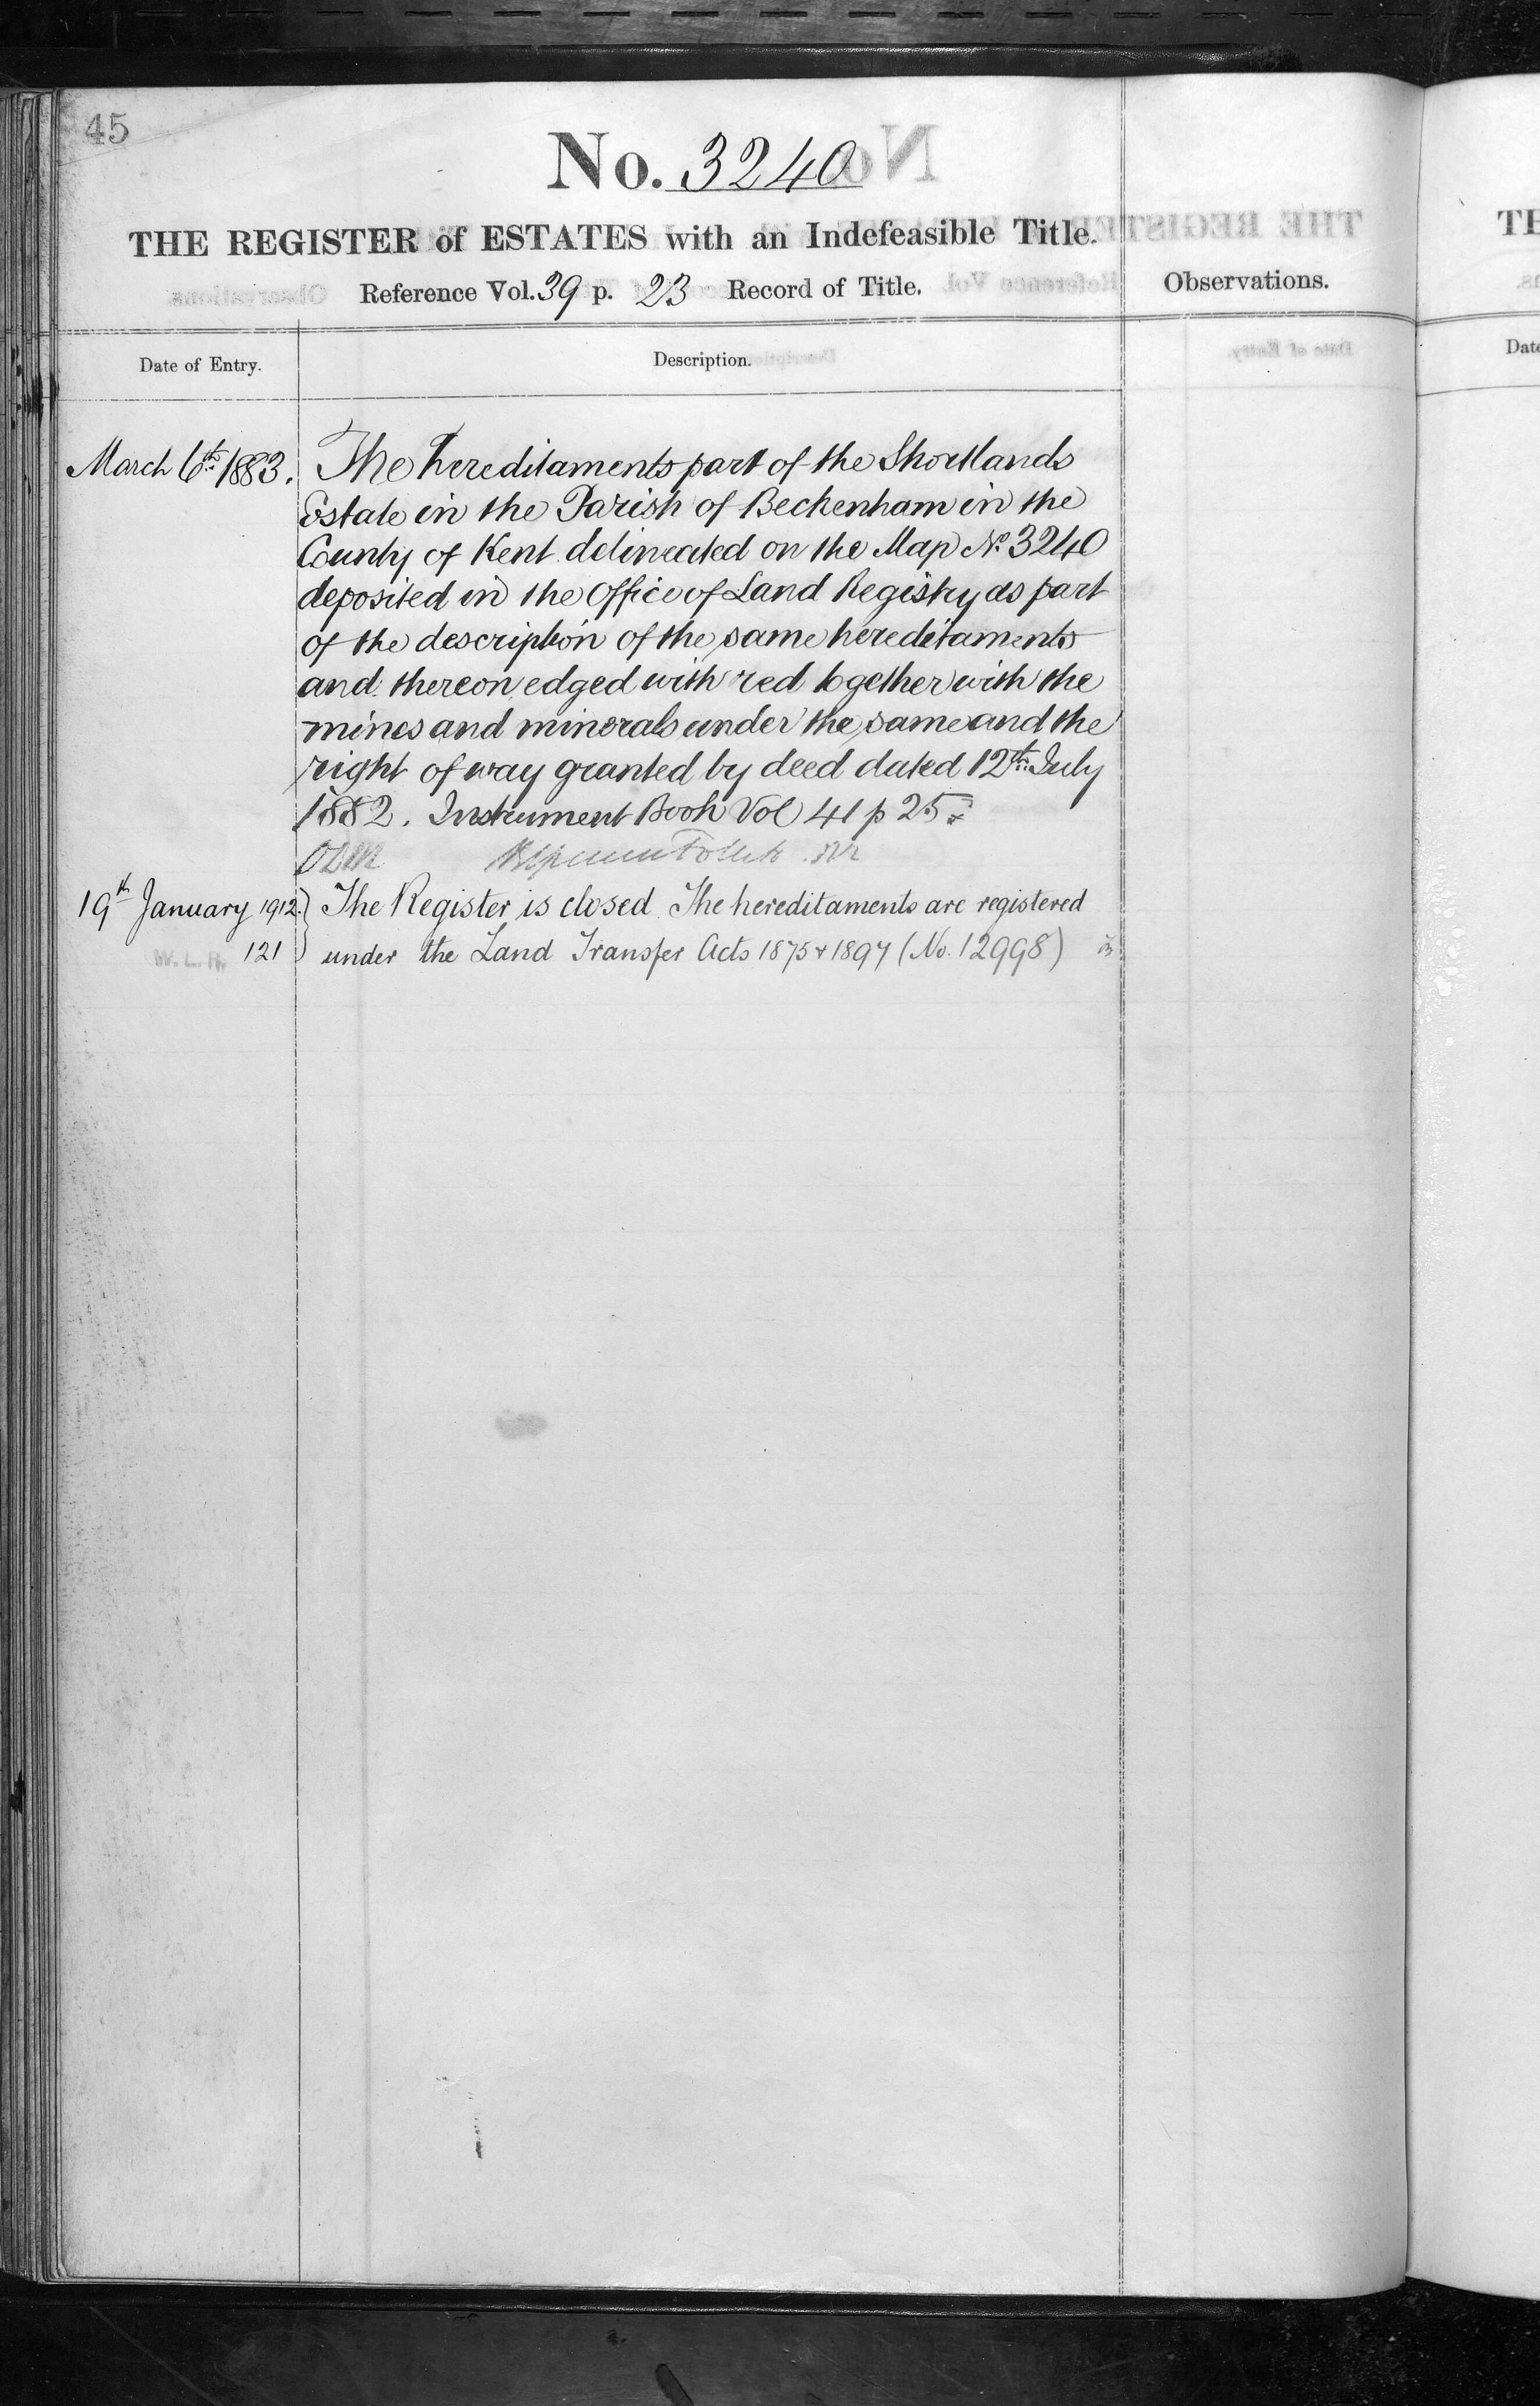 45
No. 3240
THE REGISTER of ESTATES with an Indefeasible Title.
Reference Vol. 39 p. 23 Record of Title.
Observations.
Date of Entry.
Description.
March 6th 1883. The hereditaments part of the Shortlands
Estate in the Parish of Beckenham in the
County of Kent delineated on the Map No. 3240
deposited in the Office of Land Registry as part
of the description of the same hereditaments
and thereon edged with red together with the
mines and minerals under the same and the
right of way granted by deed dated 12th July
1882. Instrument Book Vol 41 p 25
19th January 1912 } The Register is closed. The hereditaments are registered
121 } under the Land Transfer Acts 1875 & 1897 (No. 12998)
W.L.R.
TH
Date